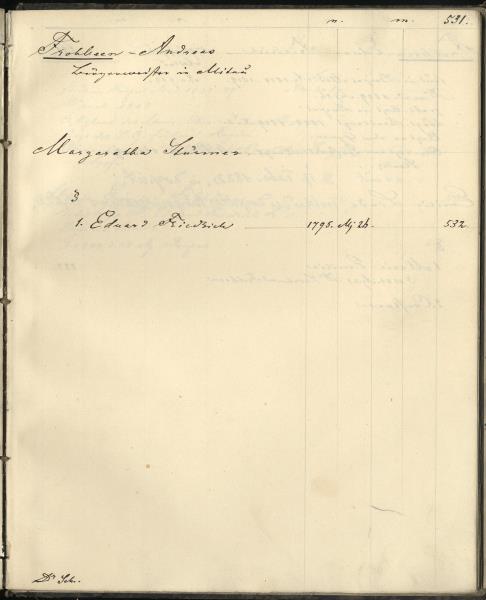 n. m. 531.
Frohbeen - Andreas
Bürgermeister in Mitau
Margaretha Stürmer.
3
1. Eduard Friedrich 1795. Mj 26. 532
Dr Sch.